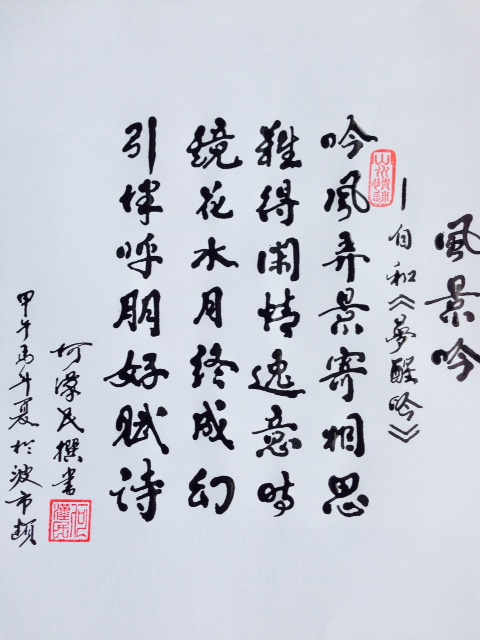 風景吟
—自和《夢醒吟》
吟風弄景寄相思
難得閑情逸意時
鏡花水月終成幻
引伴呼朋好賦詩
何漢民撰書
甲午馬年夏於波市頓
何漢民